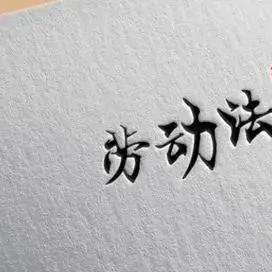 劳动法